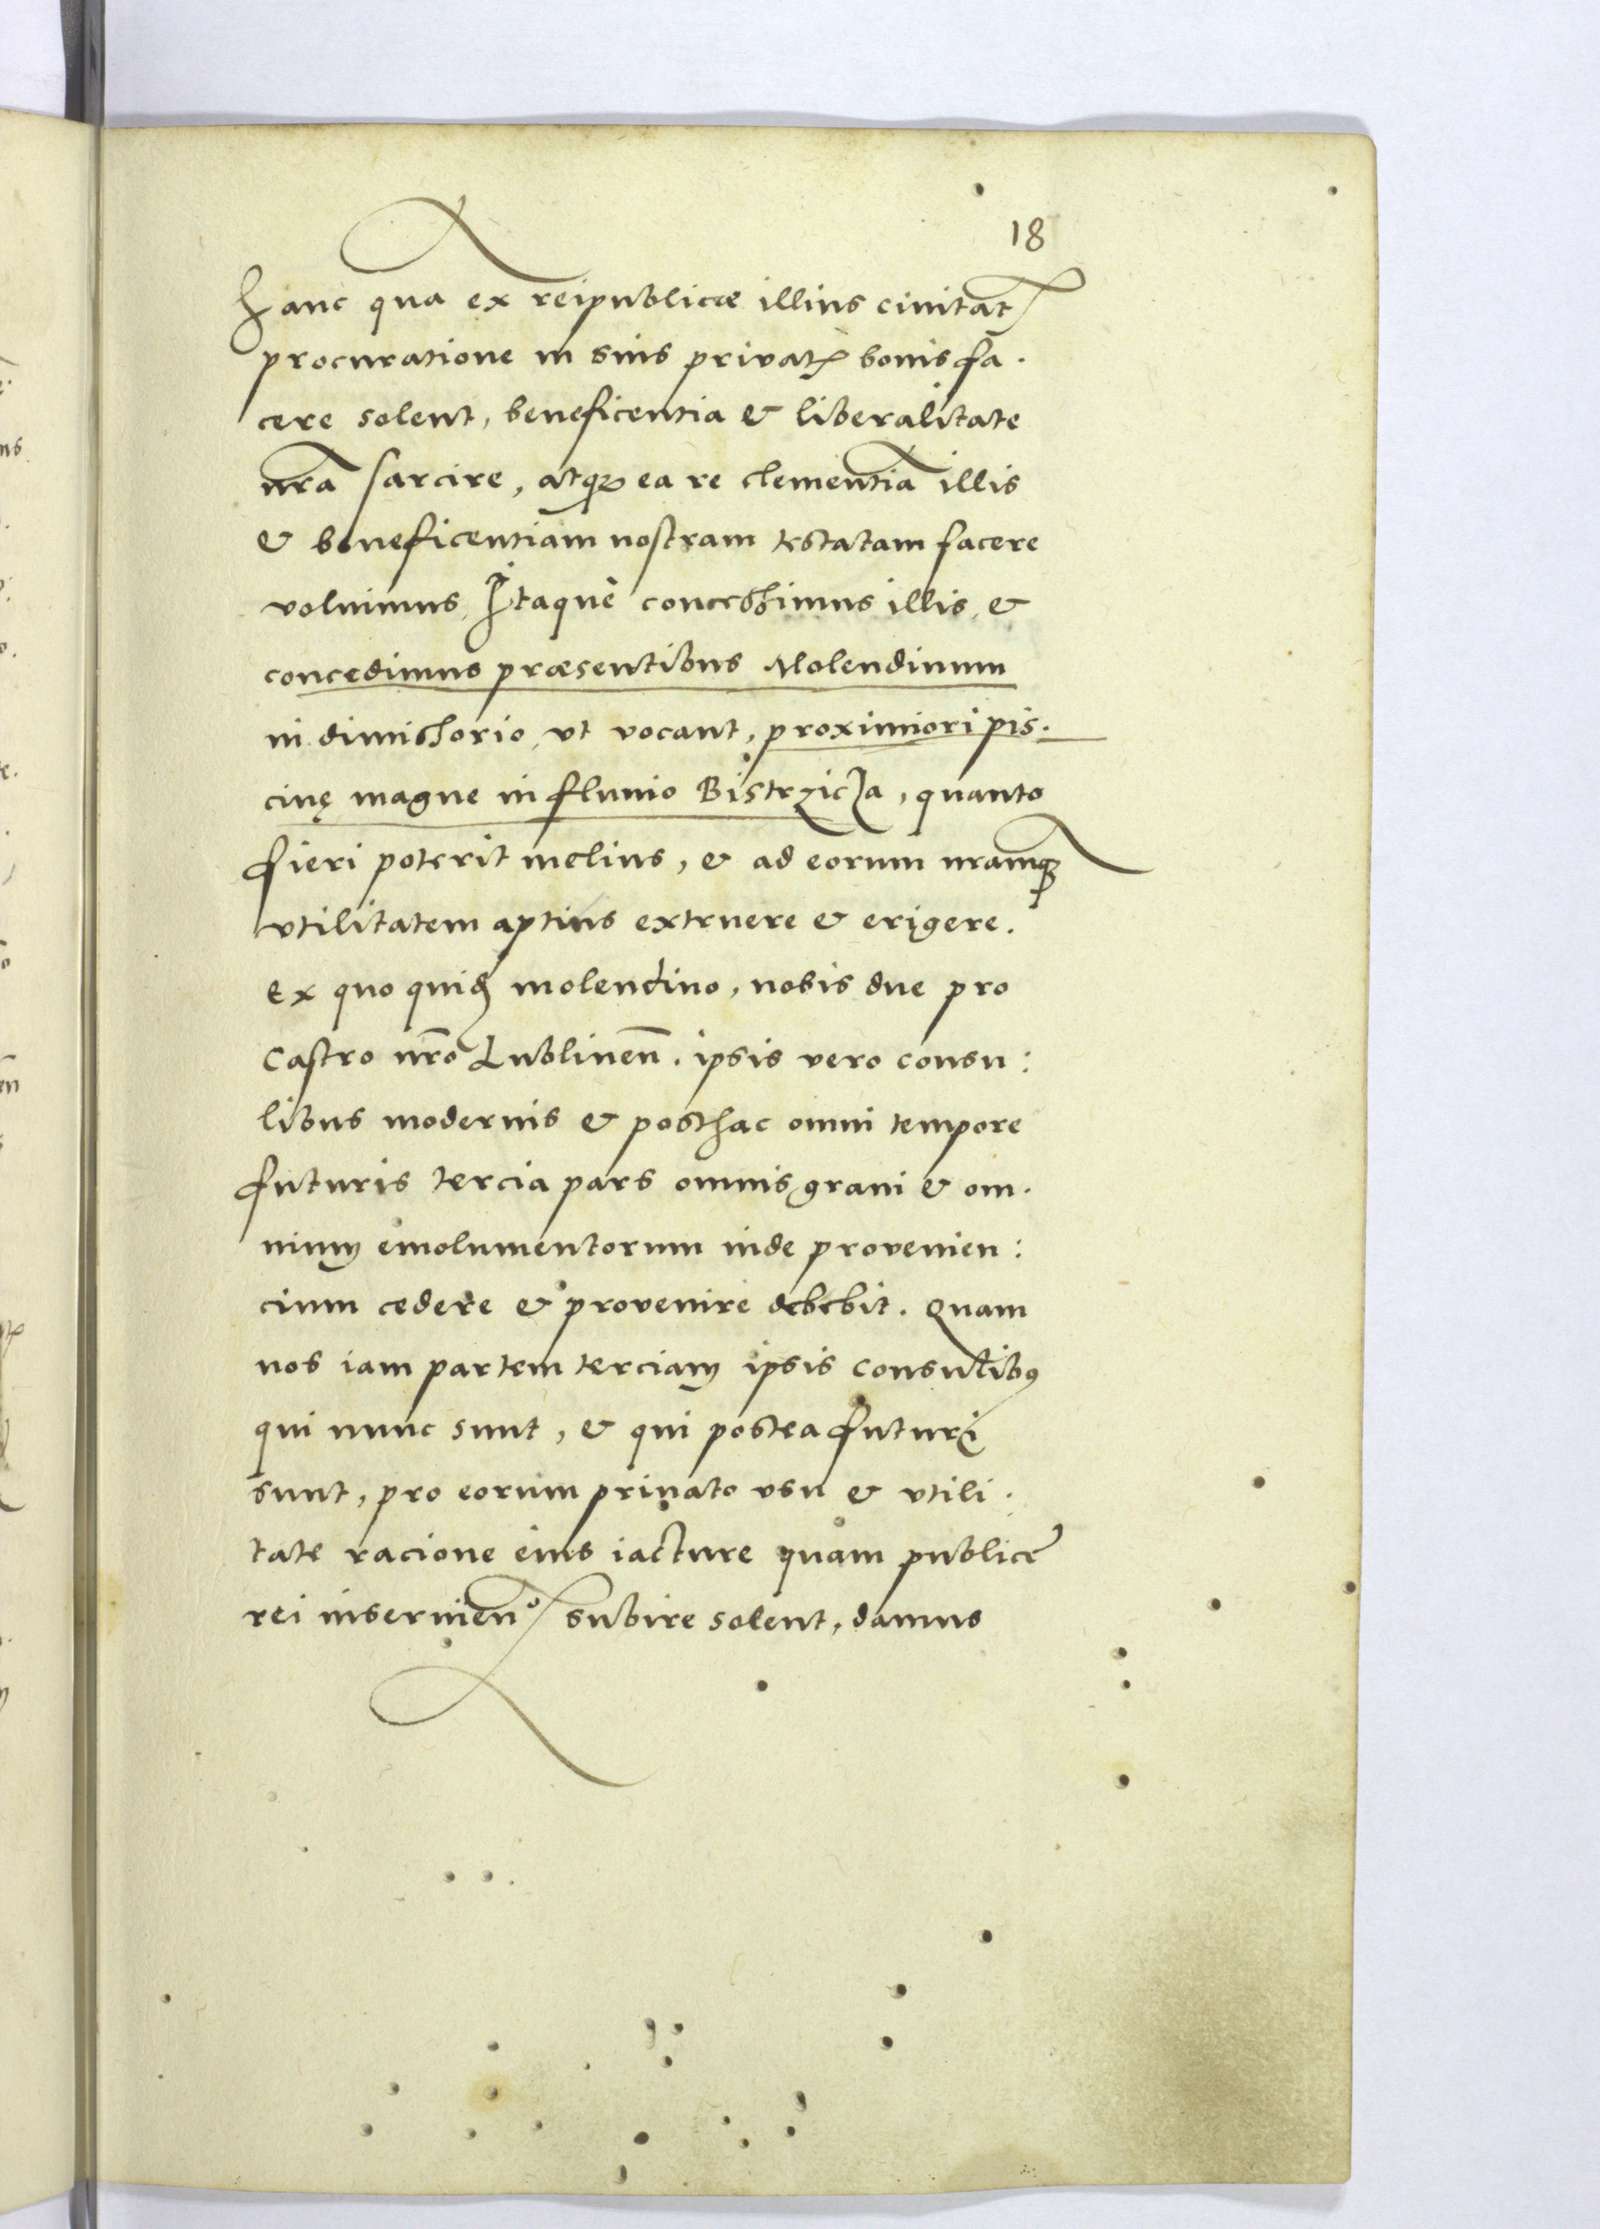 18
hanc qua ex reipublicae illius civitatꝭ
procuratione in suis privatꝭ bonis fa.
cere solent, beneficentia & liberalitate
nr̃a sarcire, atqꝫ ea re clementiã illis
& beneficentiam nostram testatam facere
voluimus, Itaque concessimus illis, &
concedimus præsentibus Molendinum
in dimissorio, ut vocant, proximiori pis.
cinę magne in fluvio Bistrzicza, quanto
fieri poterit melius, & ad eorum nramqꝫ
utilitatem aptius extruere & erigere.
Ex quo quidꝫ molendino, nobis due pro
Castro nr̃o Lublinen̄. ipsis vero consu:
libus modernis & posthac omni tempore
futuris tercia pars omnis grani & om.
nium emolumentorum inde provenien:
cium cedere & provenire debebit. Quam
nos iam partem terciam ipsis Consulibꝰ
qui nunc sunt, & qui postea futuri
sunt, pro eorum privato usu & utili.
tate racione eius iacture quam publice
rei inservien̄ subire solent, damus